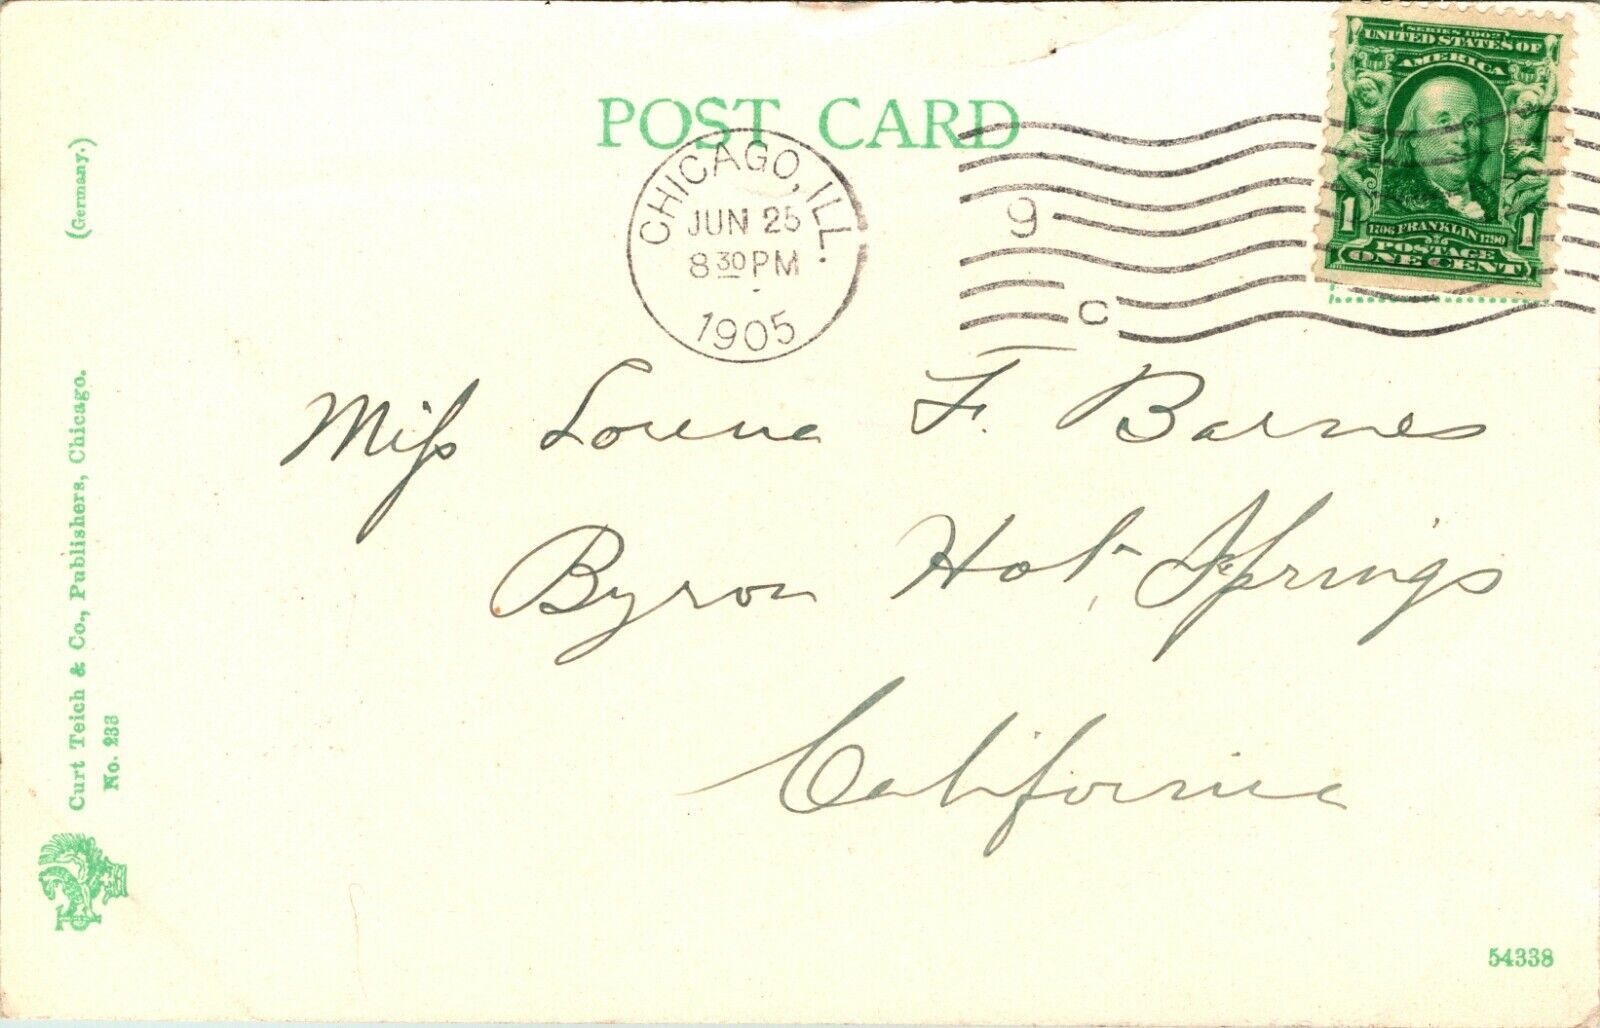 POST CARD
CHICAGO, ILL.
JUN 25
8 30 PM
1905
9
C
SERIES 1902
UNITED STATES OF
AMERICA
1 1706 FRANKLIN 1790 1
POSTAGE
ONE CENT
Miss Lorena F. Barnes
Byron Hot Springs
California
(Germany.)
Curt Teich & Co., Publishers, Chicago.
No. 233
54338